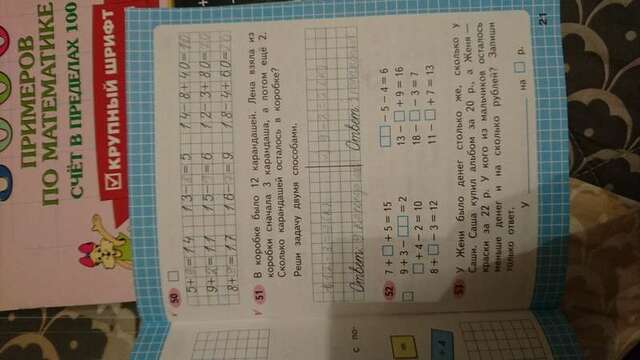 3000
ПРИМЕРОВ
ПО МАТЕМАТИКЕ
СЧЁТ В ПРЕДЕЛАХ 100
КРУПНЫЙ ШРИФТ
50
5+9=14 13-8=5 14-8+40=10
9+2=11 15-9=6 12-3+80=20
8+9=17 16-7=9 18-4+60=20
51 В коробке было 12 карандашей. Лена взяла из
коробки сначала 3 карандаша, а потом ещё 2.
Сколько карандашей осталось в коробке?
Реши задачу двумя способами.
Ответ: Ответ:
с по-
52 7 + □ + 5 = 15 □□ − 5 − 4 = 6
9 + 3 − □□ = 2 13 − □ + 9 = 16
□ + 4 − 2 = 10 18 − □ − 3 = 7
8 + □ − 3 = 12 11 − □ + 7 = 13
=
+ 4
53 У Жени было денег столько же, сколько у
Саши. Саша купил альбом за 20 р., а Женя —
краски за 22 р. У кого из мальчиков осталось
меньше денег и на сколько рублей? Запиши
только ответ.
У ____________ на □ р.
21